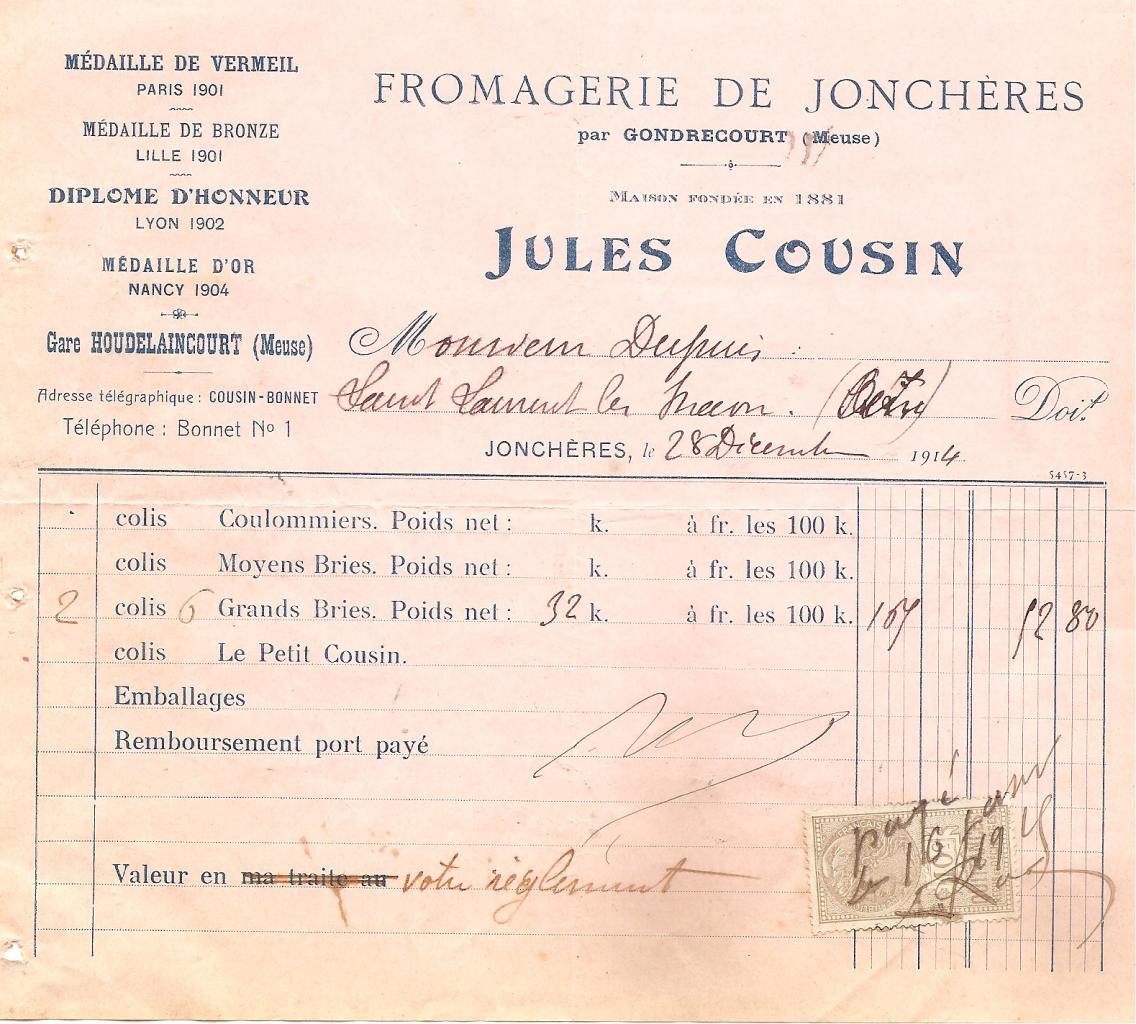 MÉDAILLE DE VERMEIL
PARIS 1901
MÉDAILLE DE BRONZE
LILLE 1901
DIPLOME D'HONNEUR
LYON 1902
MÉDAILLE D'OR
NANCY 1904
Gare HOUDELAINCOURT (Meuse)
Adresse télégraphique : COUSIN-BONNET
Téléphone : Bonnet Nº 1
FROMAGERIE DE JONCHÈRES
par GONDRECOURT (Meuse)
MAISON FONDÉE EN 1881
JULES COUSIN
Monsieur Dupuis
Saint Laurent les Macon. Doit
JONCHÈRES, le 28 Décembre 1914
5457-3
colis Coulommiers. Poids net : k. à fr. les 100 k.
colis Moyens Bries. Poids net : k. à fr. les 100 k.
2 colis 6 Grands Bries. Poids net : 32 k. à fr. les 100 k. 52 80
colis Le Petit Cousin.
Emballages
Remboursement port payé
payé
le 16
Valeur en ma traite au votre règlement